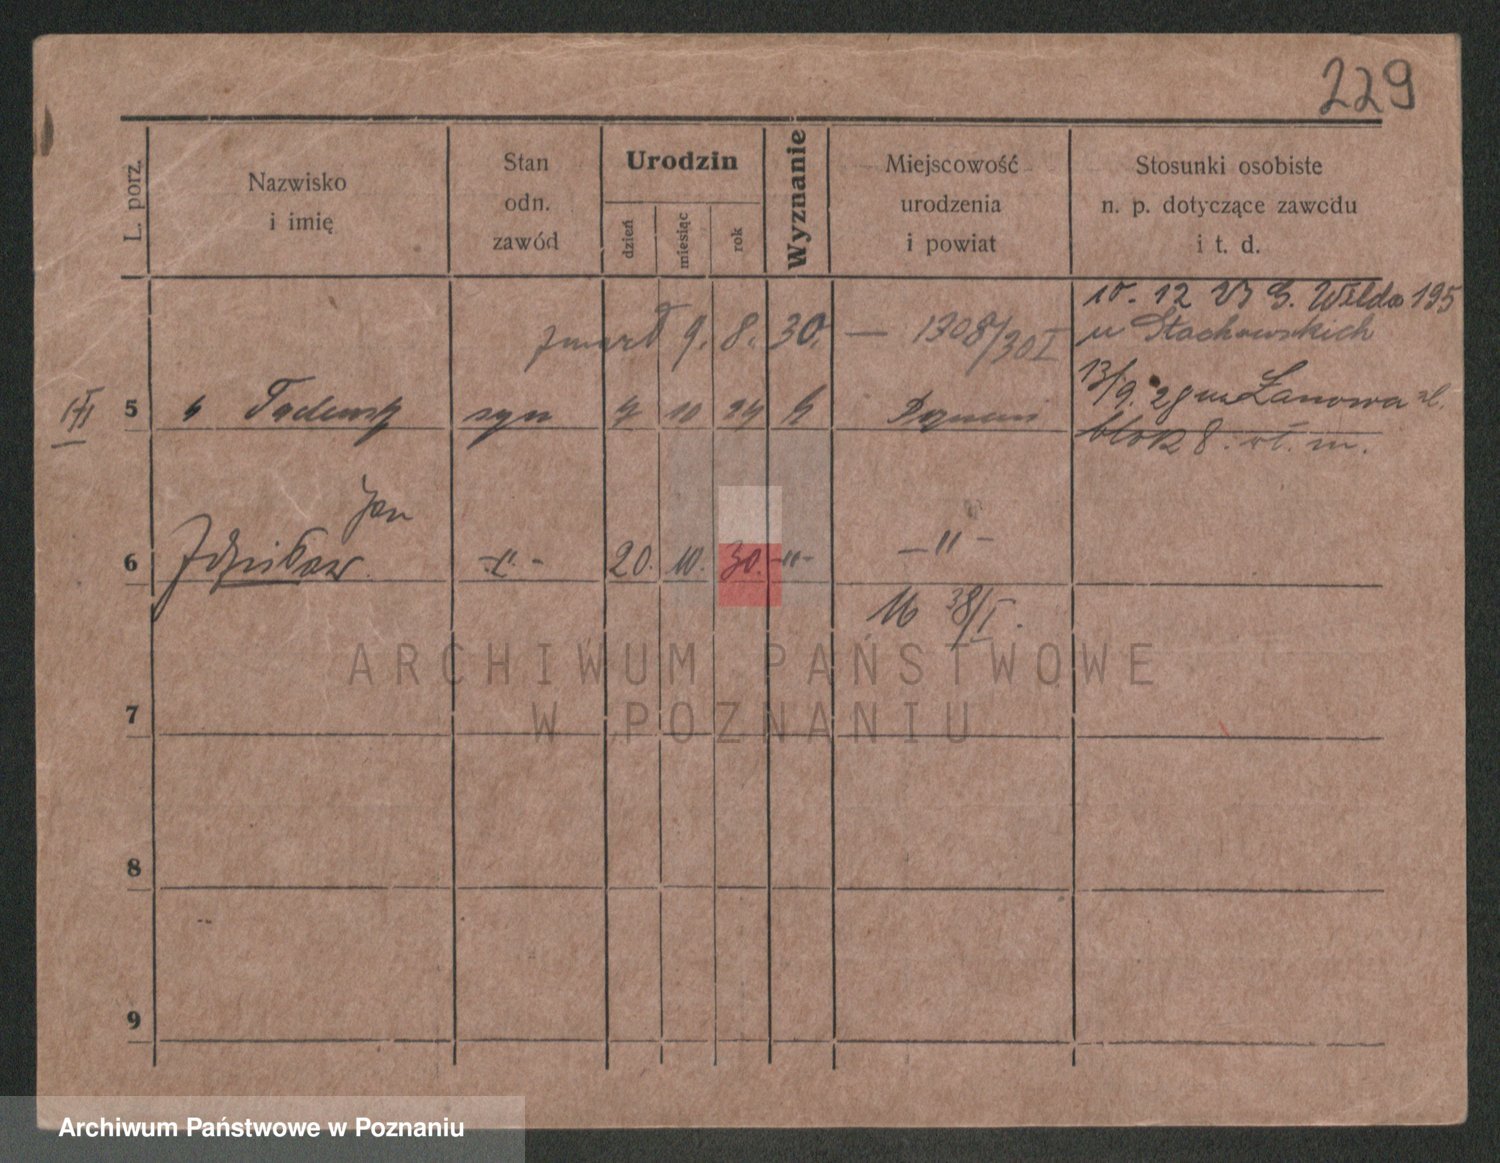 229
L. porz.
Nazwisko
i imię
Stan
odn.
zawód
Urodzin
dzień
miesiąc
rok
Wyznanie
Miejscowość
urodzenia
i powiat
Stosunki osobiste
n. p. dotyczące zawodu
i t. d.
12 G. Wilda 195
u Stachowskich
zmarł 9. 8. 30. — 1308/30 I
5 Tadeusz syn 10 24 Poznań
13/9. 28 na Łanowa
blok 8. m.
Jan
6 20. 10. 30. -"- —"—
16 38/I.
7
8
9
ARCHIWUM PAŃSTWOWE
W POZNANIU
Archiwum Państwowe w Poznaniu